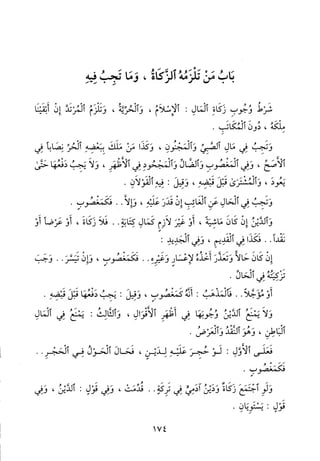 بَابُ مَنْ تَلْزَمُهُ الزَّكَاةُ ، وَمَا تَجِبُ فِيهِ
شَرْطُ وُجُوبِ زَكَاةِ ٱلْمَالِ : ٱلْإِسْلَامُ ، وَٱلْحُرِّيَّةُ ، وَتَلْزَمُ ٱلْمُرْتَدَّ إِنْ أَبْقَيْنَا
مِلْكَهُ ، دُونَ ٱلْمُكَاتَبِ .
وَتَجِبُ فِي مَالِ ٱلصَّبِيِّ وَٱلْمَجْنُونِ ، وَكَذَا مَنْ مَلَكَ بِبَعْضِهِ ٱلْحُرِّ نِصَاباً فِي
ٱلْأَصَحِّ ، وَفِي ٱلْمَغْصُوبِ وَٱلضَّالِّ وَٱلْمَجْحُودِ فِي ٱلْأَظْهَرِ ، وَلَا يَجِبُ دَفْعُهَا حَتَّىٰ
يَعُودَ ، وَٱلْمُشْتَرَىٰ قَبْلَ قَبْضِهِ ، وَقِيلَ : فِيهِ ٱلْقَوْلَانِ .
وَتَجِبُ فِي ٱلْحَالِ عَنِ ٱلْغَائِبِ إِنْ قَدَرَ عَلَيْهِ ، وَإِلَّا.. فَكَمَغْصُوبٍ .
وَٱلدَّيْنُ إِنْ كَانَ مَاشِيَةً ، أَوْ غَيْرَ لَازِمٍ كَمَالِ كِتَابَةٍ.. فَلَا زَكَاةَ ، أَوْ عَرْضاً أَوْ
نَقْداً.. فَكَذَا فِي ٱلْقَدِيمِ ، وَفِي ٱلْجَدِيدِ :
إِنْ كَانَ حَالّاً وَتَعَذَّرَ أَخْذُهُ لِإِعْسَارٍ وَغَيْرِهِ.. فَكَمَغْصُوبٍ ، وَإِنْ تَيَسَّرَ.. وَجَبَ
تَزْكِيَتُهُ فِي ٱلْحَالِ .
أَوْ مُؤَجَّلاً.. فَٱلْمَذْهَبُ : أَنَّهُ كَمَغْصُوبٍ ، وَقِيلَ : يَجِبُ دَفْعُهَا قَبْلَ قَبْضِهِ .
وَلَا يَمْنَعُ ٱلدَّيْنُ وُجُوبَهَا فِي أَظْهَرِ ٱلْأَقْوَالِ ، وَٱلثَّالِثُ : يَمْنَعُ فِي ٱلْمَالِ
ٱلْبَاطِنِ ، وَهُوَ ٱلنَّقْدُ وَٱلْعَرْضُ .
فَعَلَى ٱلْأَوَّلِ : لَوْ حُجِرَ عَلَيْهِ لِدَيْنٍ ، فَحَالَ ٱلْحَوْلُ فِي ٱلْحَجْرِ..
فَكَمَغْصُوبٍ .
وَلَوِ ٱجْتَمَعَ زَكَاةٌ وَدَيْنُ آدَمِيٍّ فِي تَرِكَةٍ.. قُدِّمَتْ ، وَفِي قَوْلٍ : ٱلدَّيْنُ ، وَفِي
قَوْلٍ : يَسْتَوِيَانِ .
١٧٤